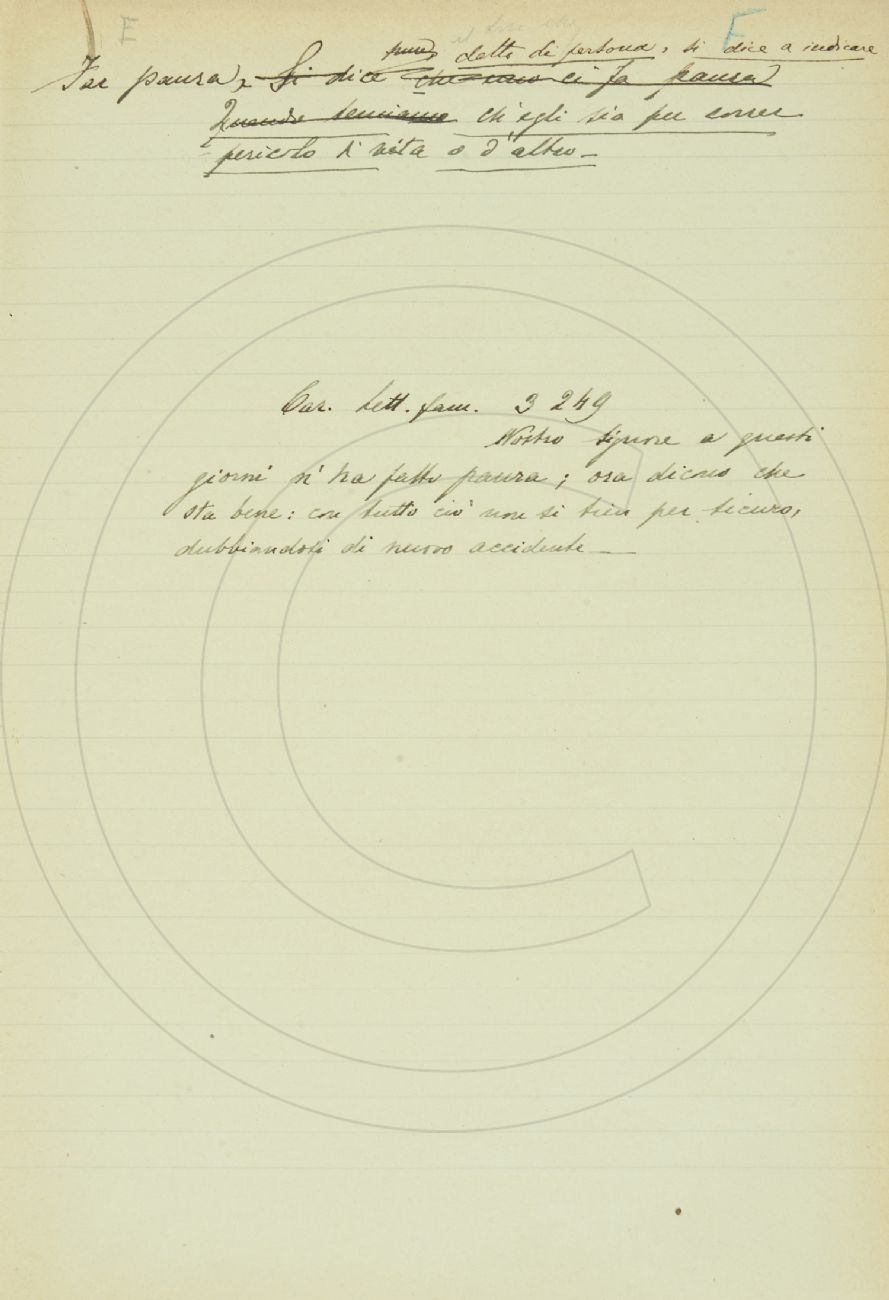 E F
pure detto di persona, si dice a indicare
Far paura, Si dice che uno ci fa paura
Quando temiamo ch'egli sia per correr
pericolo di vita o d'altro_
Car. Lett. fam. 3 249
Nostro Signore a questi
giorni n'ha fatto paura; ora dicono che
sta bene: con tutto ciò non si tien per sicuro,
dubbiandosi di nuovo accidente_